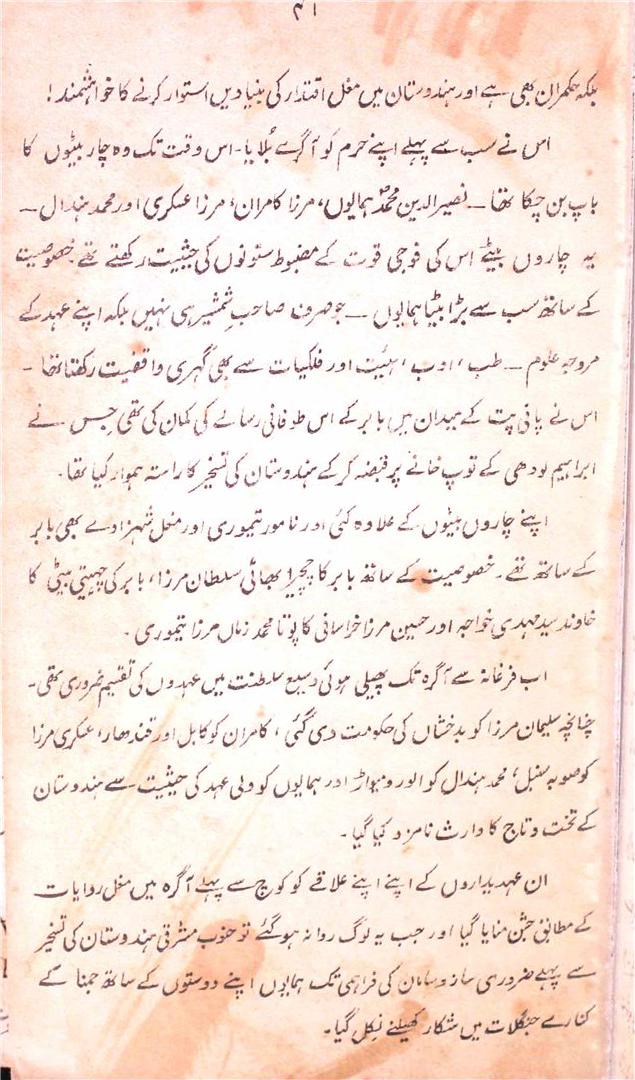 ۴۱
بلکہ حکمران بھی ہے اور ہندوستان میں مغل اقتدار کی بنیادیں استوار کرنے کا خواہشمند!
اس نے سب سے پہلے اپنے حرم کو آگرے بُلایا۔ اس وقت تک وہ چار بیٹوں کا
باپ بن چکا تھا ـــ نصیر الدین محمدؐ ہمایوں، مرزا کامران، مرزا عسکری اور محمد ہندال ـــ
یہ چاروں بیٹے اس کی فوجی قوت کے مضبوط ستونوں کی حیثیت رکھتے تھے۔ خصوصیت
کے ساتھ سب سے بڑا بیٹا ہمایوں ـــ جو صرف صاحبِ شمشیر ہی نہیں بلکہ اپنے عہد کے
مروجہ علوم ـــ طب، ادب، ہئیت اور فلکیات سے بھی گہری واقفیت رکھتا تھا۔
اس نے پانی پت کے میدان میں بابر کے اس طوفانی رسالے کی کمان کی تھی جس نے
ابراہیم لودھی کے توپ خانے پر قبضہ کر کے ہندوستان کی تسخیر کا راستہ ہموار کیا تھا۔
اپنے چاروں بیٹوں کے علاوہ کئی اور نامور تیموری اور مغل شہزادے بھی بابر
کے ساتھ تھے۔ خصوصیت کے ساتھ بابر کا چچیرا بھائی سلطان مرزا، بابر کی چہیتی بیٹی کا
خاوند سید مہدی خواجہ اور حسین مرزا خراسانی کا پوتا محمد زماں مرزا تیموری۔
اب فرغانہ سے آگرہ تک پھیلی ہوئی وسیع سلطنت میں عہدوں کی تقسیم ضروری تھی۔
چنانچہ سلیمان مرزا کو بدخشاں کی حکومت دی گئی، کامران کو کابل اور قندھار، عسکری مرزا
کو صوبہ سنبل، محمد ہندال کو الور و میواڑ اور ہمایوں کو ولی عہد کی حیثیت سے ہندوستان
کے تخت و تاج کا وارث نامزد کیا گیا۔
ان عہدیداروں کے اپنے اپنے علاقے کو کوچ سے پہلے آگرہ میں مغل روایات
کے مطابق جشن منایا گیا اور جب یہ لوگ روانہ ہو گئے تو جنوب مشرقی ہندوستان کی تسخیر
سے پہلے ضروری ساز و سامان کی فراہمی تک ہمایوں اپنے دوستوں کے ساتھ جمنا کے
کنارے جنگلات میں شکار کھیلنے نکل گیا۔